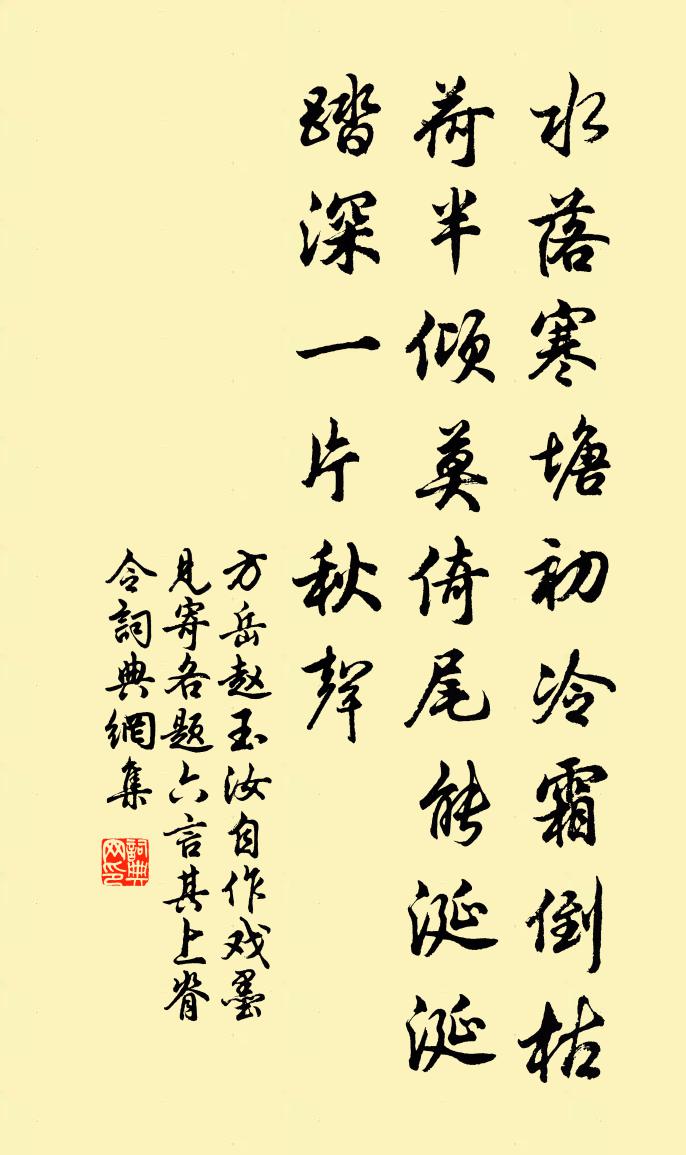 水落寒塘初冷霜倒枯
荷半倾莫倚尾能涎涎
踏深一片秋聲
方岳赵玉汝自作戏墨
見寄各題六言其上脊
令詞典網集
詞典
网印